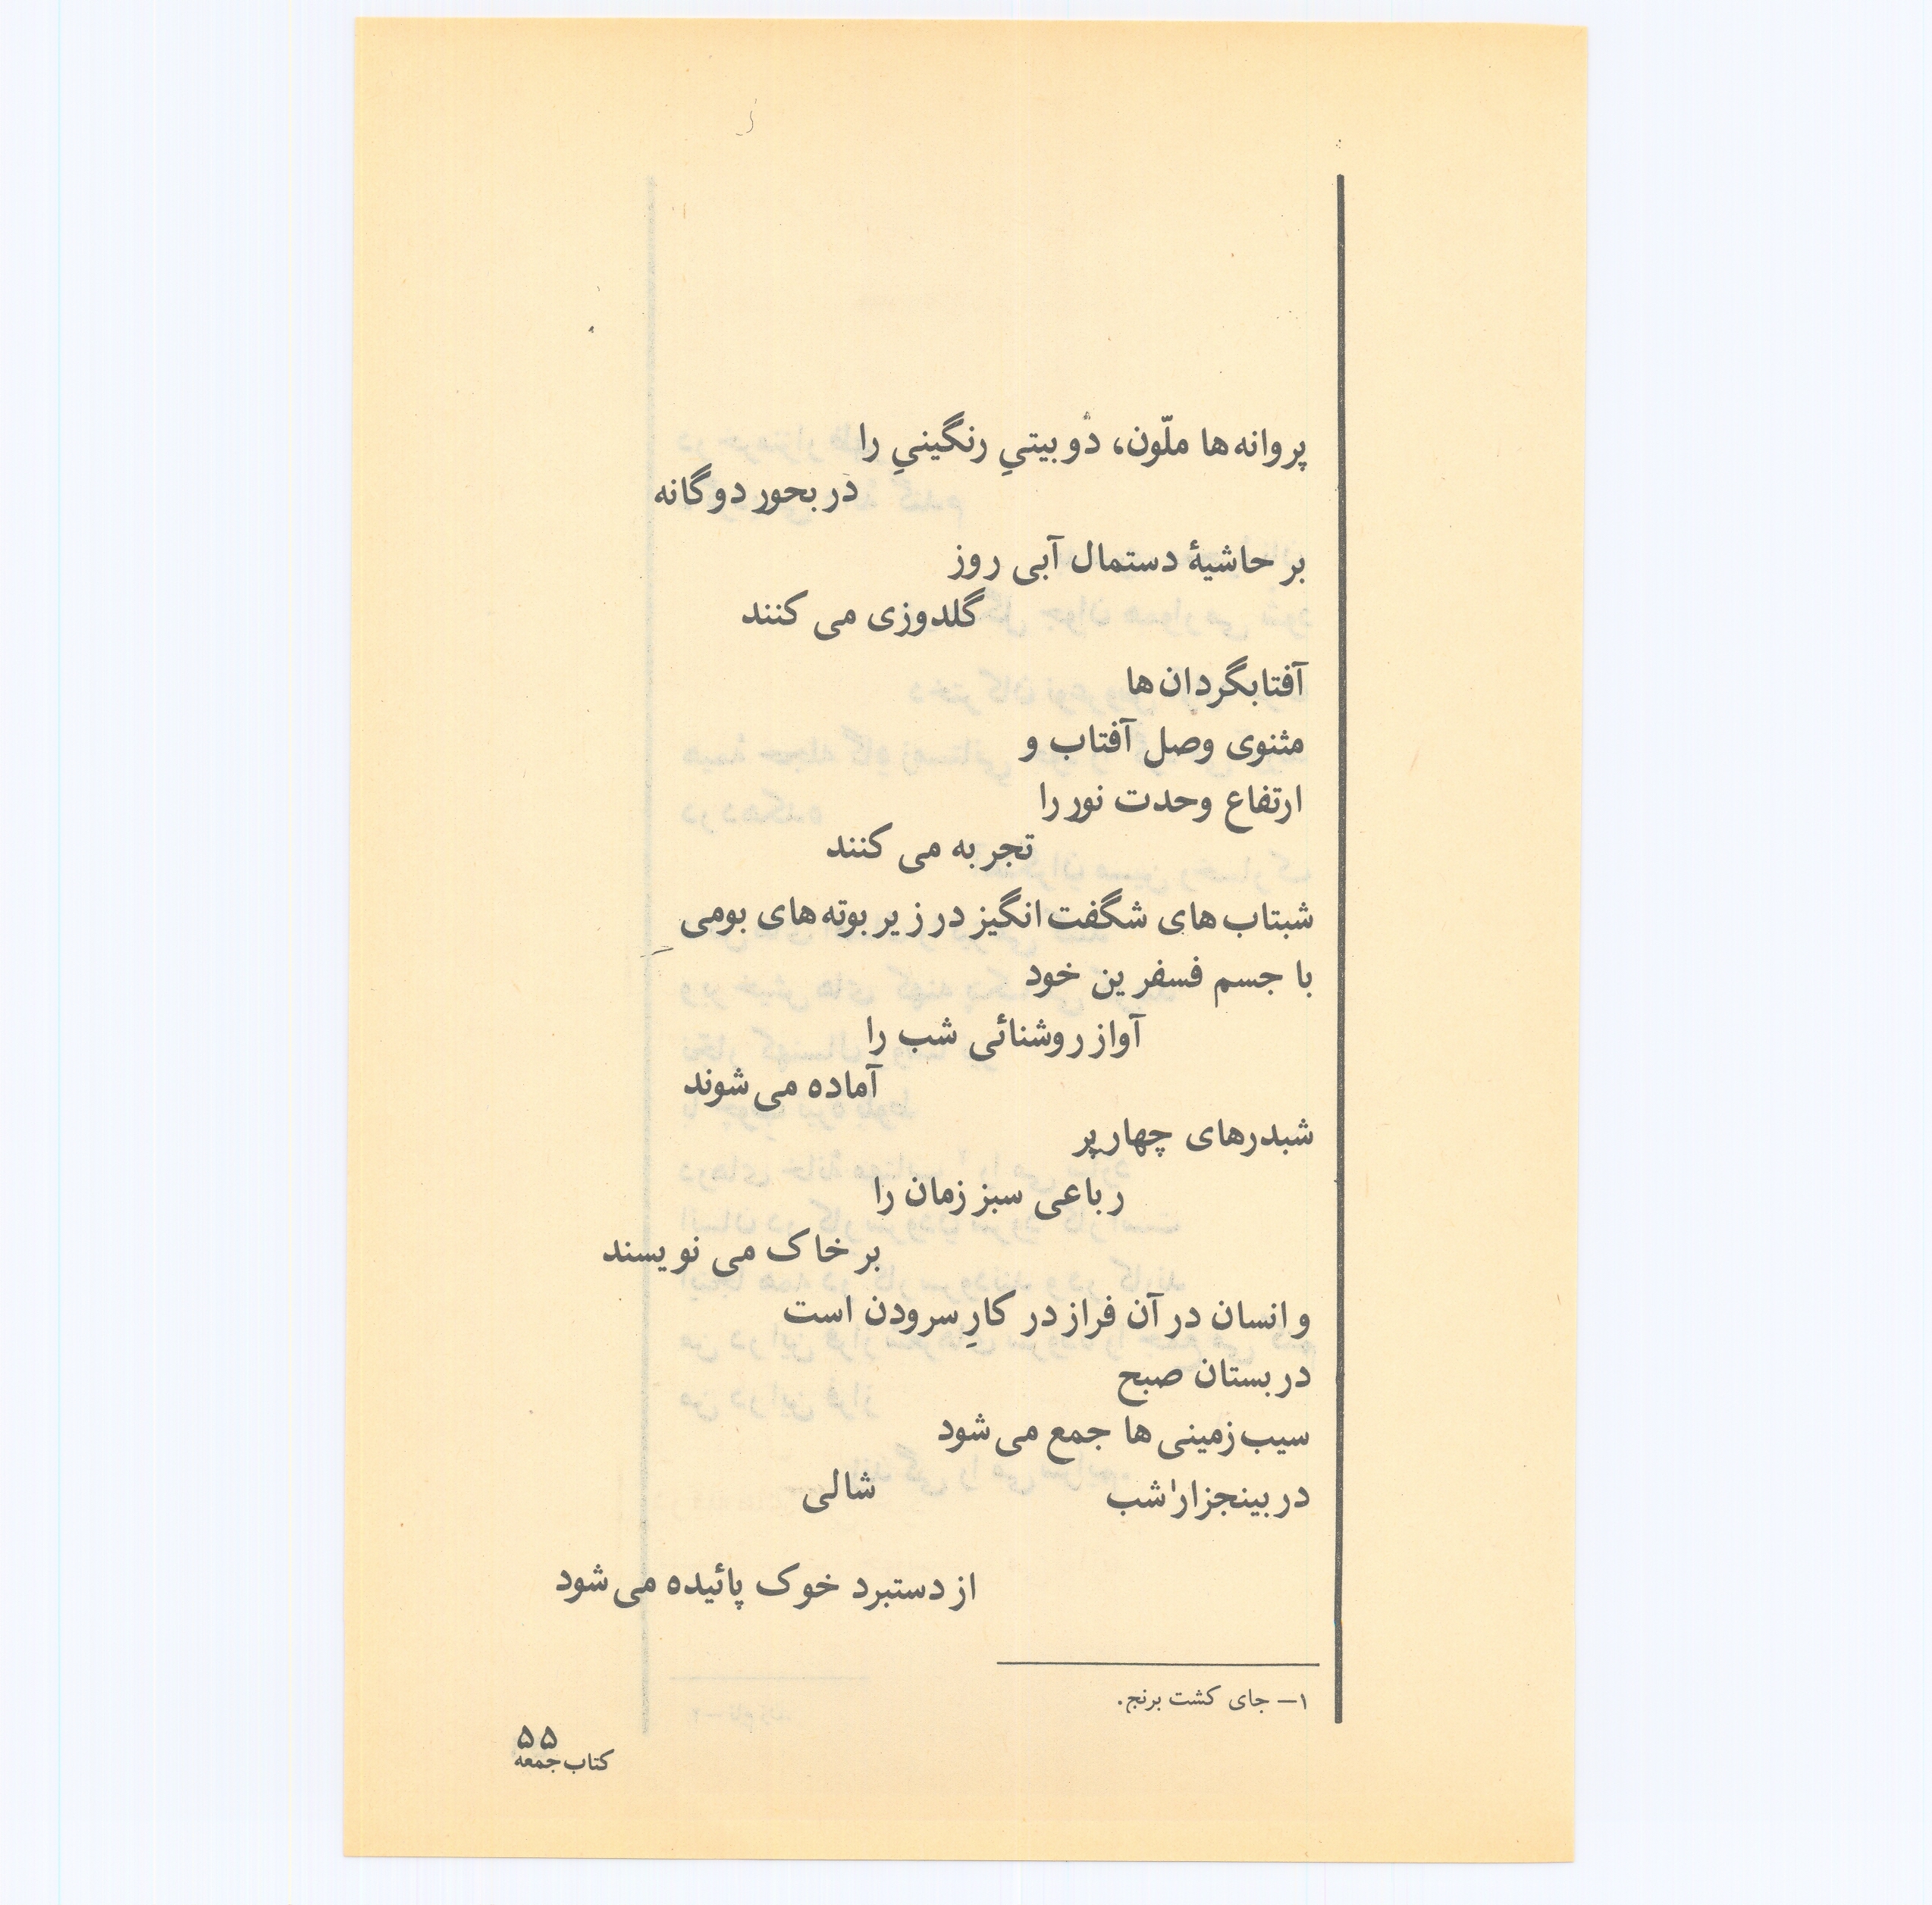 پروانه‌ها ملّون، دو بیتیِ رنگینیِ را
در بحور دوگانه
بر حاشیهٔ دستمال آبی روز
گلدوزی می کنند
آفتابگردان‌ها
مثنوی وصل آفتاب و
ارتفاع وحدت نور را
تجربه می کنند
شبتاب‌های شگفت‌انگیز در زیر بوته‌های بومی
با جسم فسفرین خود
آواز روشنائی شب را
آماده می‌شوند
شبدرهای چهارپر
رباعی سبز زمان را
بر خاک می نویسند
و انسان در آن فراز در کارِ سرودن است
در بستان صبح
سیب‌زمینی‌ها جمع می‌شود
در بینجزار۱ شب شالی
از دستبرد خوک پائیده می‌شود
۱– جای کشت برنج.
۵۵
کتاب جمعه